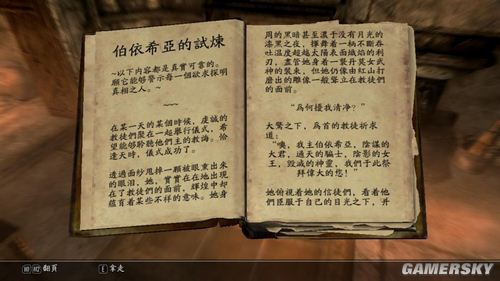 伯依希亞的試煉
~以下內容都是真實可靠的。
願它能够警示每一個欲求探明
真相之人。~
~~~
在某一天的某個時候,虔誠的
教徒們聚在一起舉行儀式,希
望能够聆聽他們主的教誨。恰
逢天時,儀式成功了。
透過面紗甩掉一顆被眼熏出來
的眼泪,她,實實在在地出現
在了教徒們的面前,輝煌中却
蕴育着某些不祥的意味。她身
周的黑暗甚至濃于没有月光的
漆黑之夜,揮舞着一柄不斷吞
吐温度超越太陽表面熾焰的利
刃,盡管她身着一襲丹莫女武
神的裝束,但她仍像由紅山打
磨出的雕像一般聳立在教徒們
的面前。
“爲何擾我清净?”
大驚之下,爲首的教徒祈求
道:
“噢,我主伯依希亞,陰謀的
大君,通天的騙士,陰影的女
王,毀滅的神靈,我們于此祭
拜偉大的您!”
她俯視着她的信徒們,看着他
們臣服于自己的目光之下,并
翻頁
E 拿走
GAMERSKY